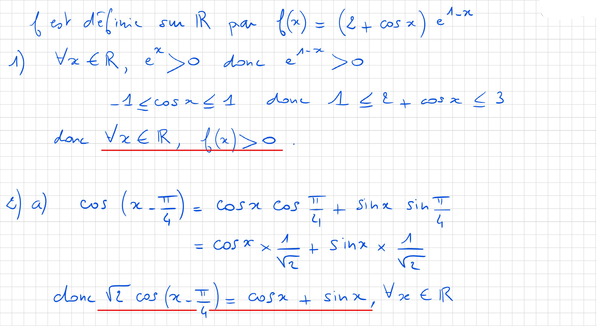 f est définie sur ℝ par f(x) = (2 + cos x) e^{1-x}
1) ∀x ∈ ℝ, e^x > 0 donc e^{1-x} > 0
-1 ≤ cos x ≤ 1 donc 1 ≤ 2 + cos x ≤ 3
donc ∀x ∈ ℝ, f(x) > 0.
2) a) cos (x - π/4) = cos x cos π/4 + sin x sin π/4
= cos x × 1/√2 + sin x × 1/√2
donc √2 cos (x - π/4) = cos x + sin x, ∀x ∈ ℝ